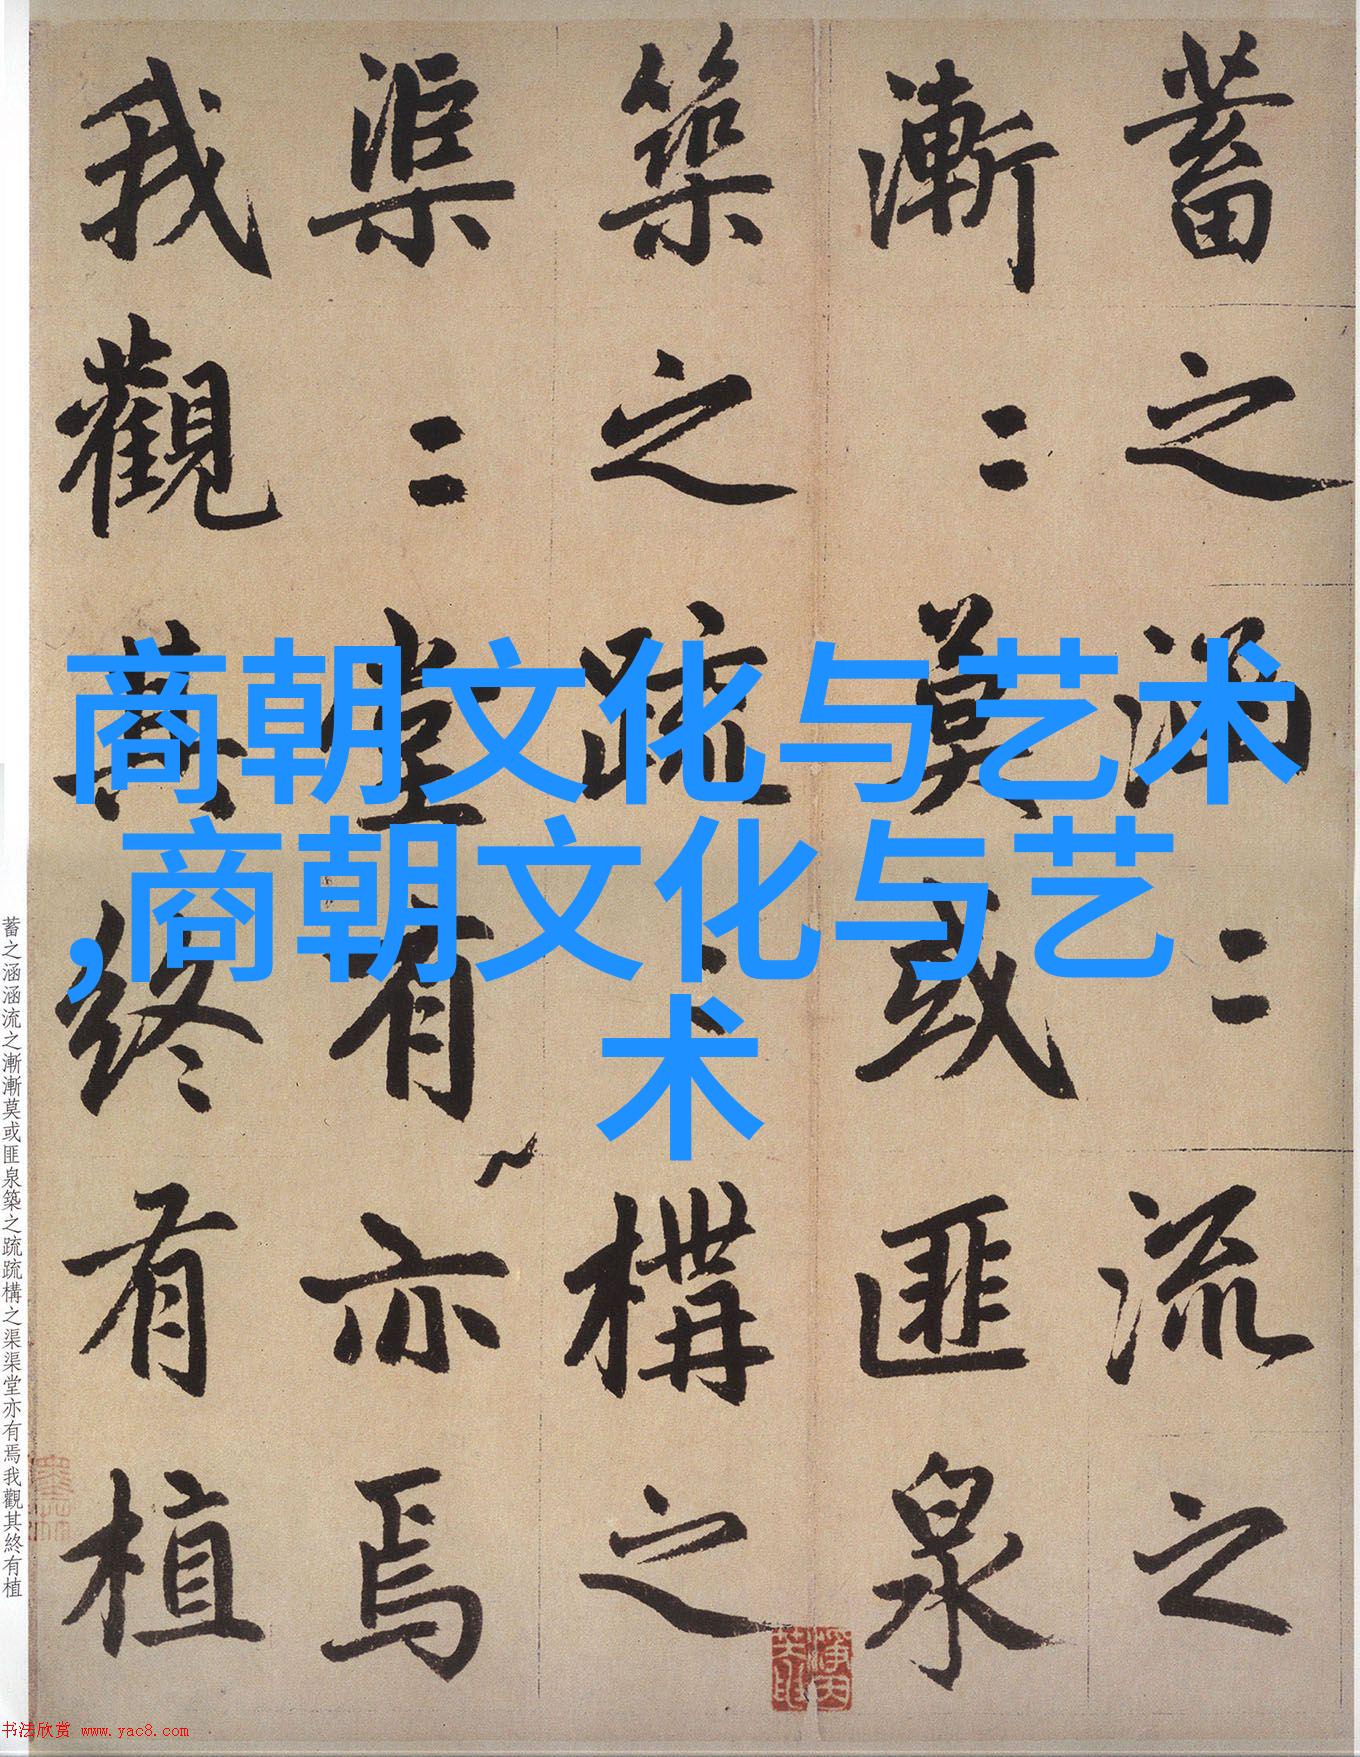 蓄之涵〻流之
漸〻莫或匪泉
築之疏〻構之
渠〻堂有亦焉
我觀其終有植
商朝文化与艺术
,商朝文化与艺
术
蓄之涵涵流之漸漸莫或匪泉築之疏疏構之渠渠堂亦有焉我觀其終有植
书法欣赏 www.yac8.com